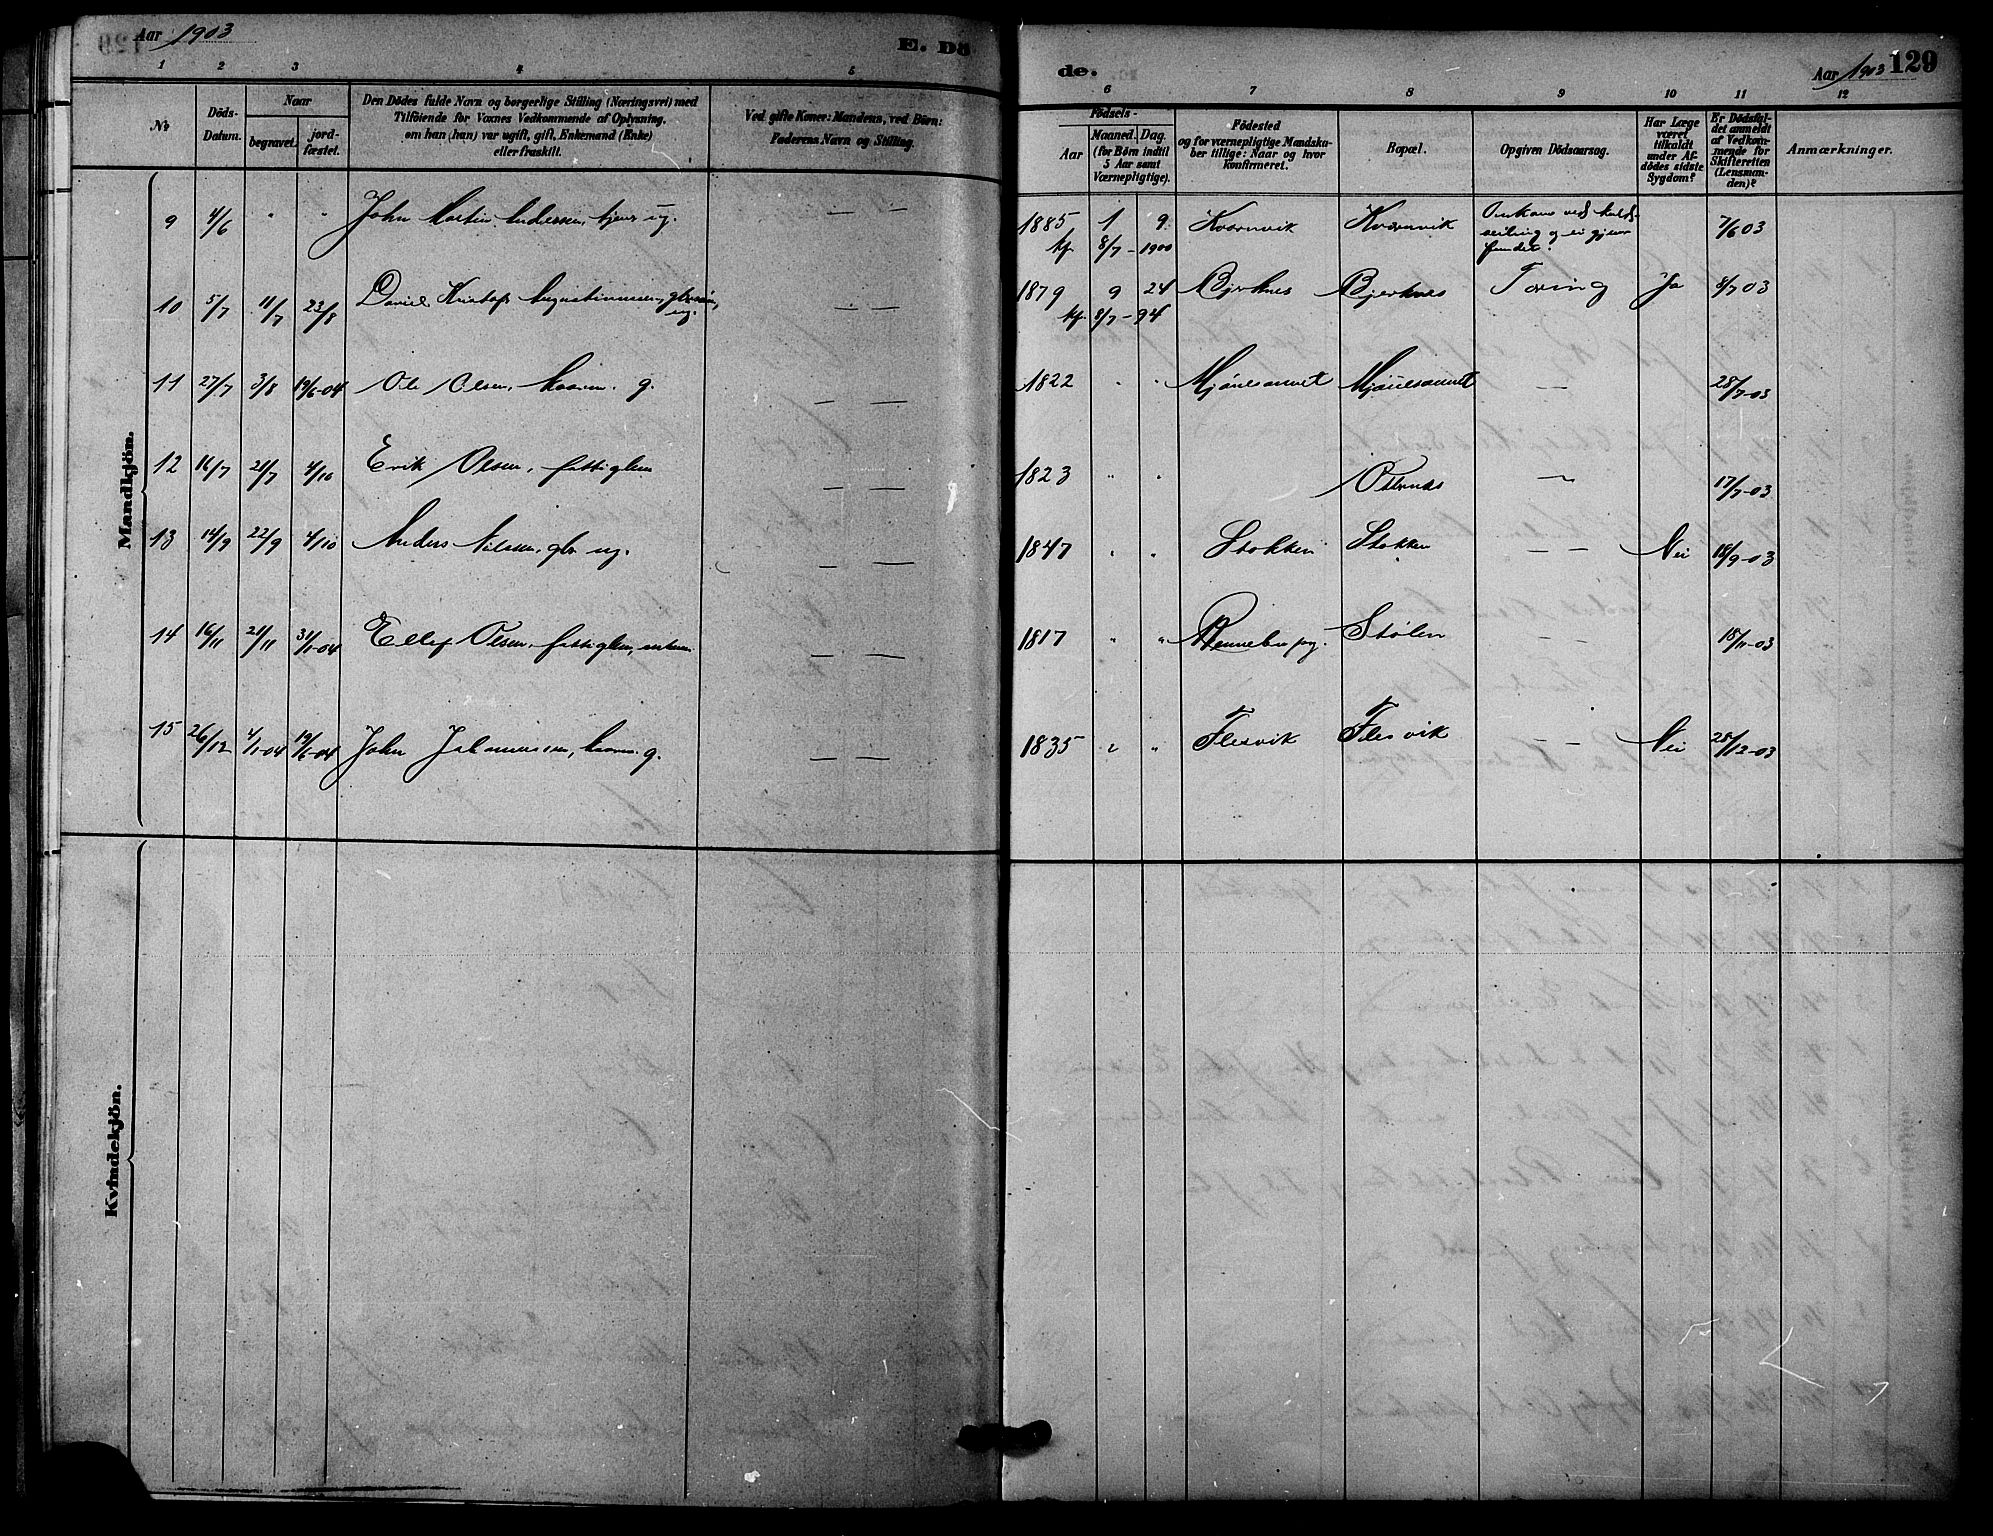 Aar 1903
E. Dö
de.
Aar 1903
129
1 2 3 4 5
6 7 8 9 10 11 12
No
Döds-
Datum.
Naar
begravet.
jord-
fæstet.
Den Dödes fulde Navn og borgerlige Stilling (Næringsvei) med
Tilföiende for Voxnes Vedkommende af Oplysning,
om han (hun) var ugift, gift, Enkemand (Enke)
eller fraskilt.
Ved gifte Koner: Mandens, ved Börn:
Faderens Navn og Stilling.
Födsels-
Aar
Maaned. Dag.
(for Börn indtil
5 Aar samt
Værnepligtige).
Födested
og for værnepligtige Mandska-
ber tillige: Naar og hvor
konfirmeret.
Bopæl.
Opgiven Dödsaarsag.
Har Læge
været
tilkaldt
under Af-
dödes sidste
Sygdom?
Er Dödsfal-
det anmeldt
af Vedkom-
mende for
Skifteretten
(Lensman-
den)?
Anmærkninger.
Mandkjön.
9 4/6 " " John Martin Andersen, tjener ug. — — 1885 1 9 Kvernvik Kvernvik Omkom ved
seiling og ei gjen-
fundet. 7/6 03
kf. 8/7 - 1900
10 5/7 11/7 23/8 Daniel Kristofer Augustinussen, gbrsøn,
ug. — — 1879 9 24 Bjerknes Bjerknes Tæring Ja 8/7 03
kf. 8/7 - 94
11 27/7 3/8 19/6-04 Ole Olsen, kaarm. g. — — 1822 " " Mjønesaunet Mjønesaunet — 28/7-03
12 16/7 21/7 4/10 Erik Olsen, fattiglem — — 1823 " " Odernæs — 17/7-03
13 14/9 22/9 4/10 Anders Nilssen, gbr. ug. — — 1847 " " Stokken Stokken — — Nei 18/9-03
14 16/11 21/11 31/1-04 Ellef Olsen, fattiglem, enkem. — — 1817 " " Rennebu pg. Stølen — — 18/11-03
15 26/12 4/1-04 19/6-04 John Johannesen, kaarm. g. — — 1835 " " Flesvik Flesvik — — Nei 28/12-03
Kvindekjön.